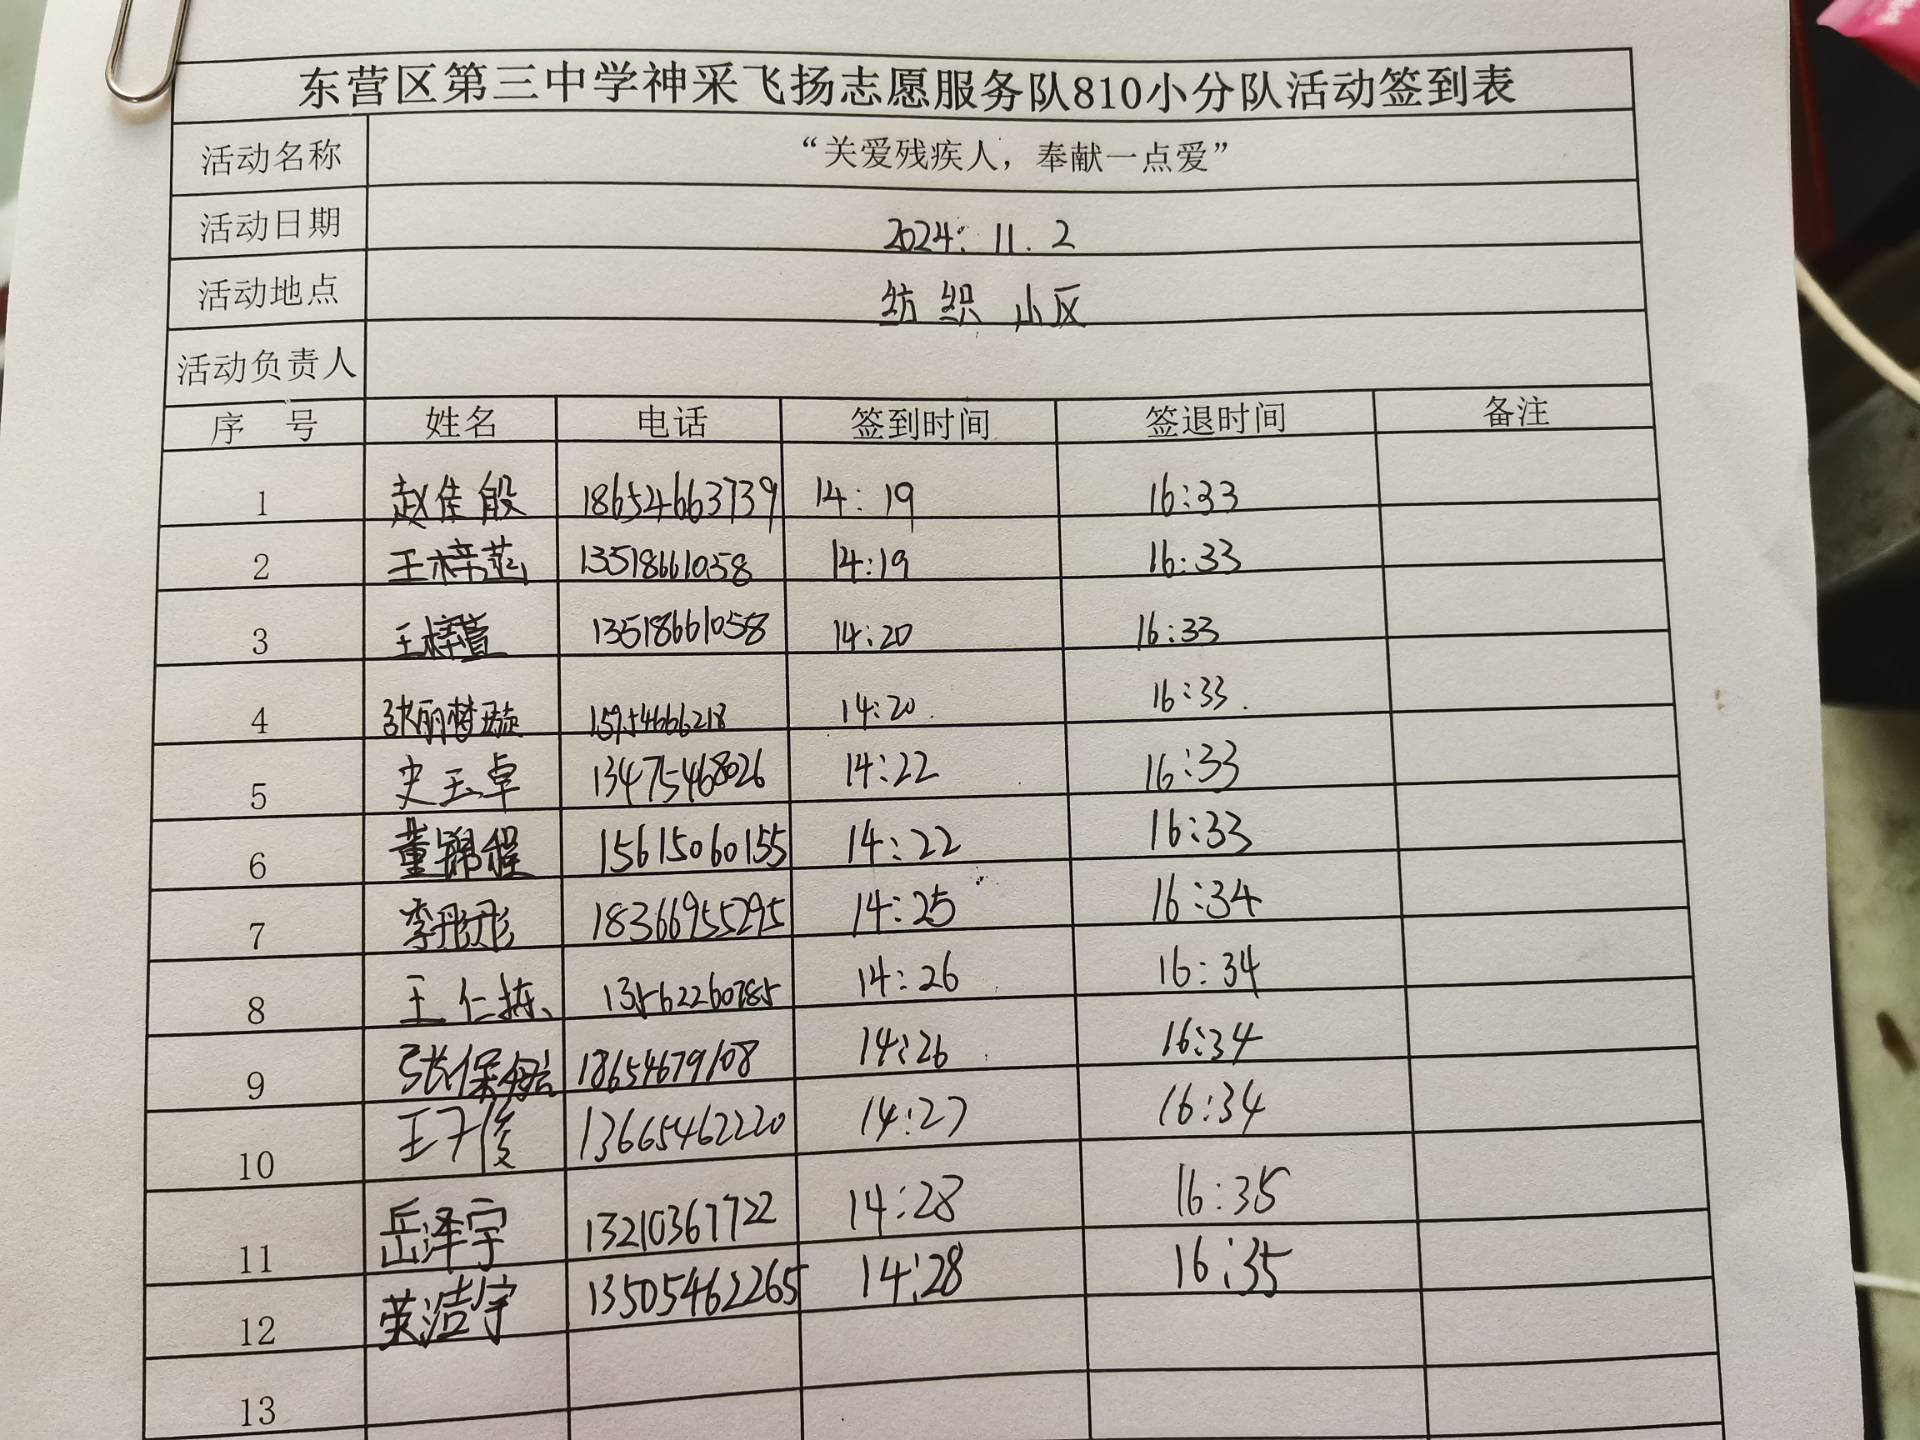 东营区第三中学神采飞扬志愿服务队810小分队活动签到表
活动名称 “关爱残疾人，奉献一点爱”
活动日期 2024. 11. 2
活动地点 纺织小区
活动负责人
序 号 姓名 电话 签到时间 签退时间 备注
1 赵佳殷 18654663739 14:19 16:33
2 王梓 13518661058 14:19 16:33
3 王梓萱 13518661058 14:20 16:33
4 张丽梦璇 15954666218 14:20 16:33
5 史玉卓 13475468026 14:22 16:33
6 董锦程 15615060155 14:22 16:33
7 李彤彤 18366955295 14:25 16:34
8 王仁栋 13562260785 14:26 16:34
9 张保 18654679108 14:26 16:34
10 王子俊 13665462220 14:27 16:34
11 岳泽宇 13210367722 14:28 16:35
12 洁宇 13505462265 14:28 16:35
13